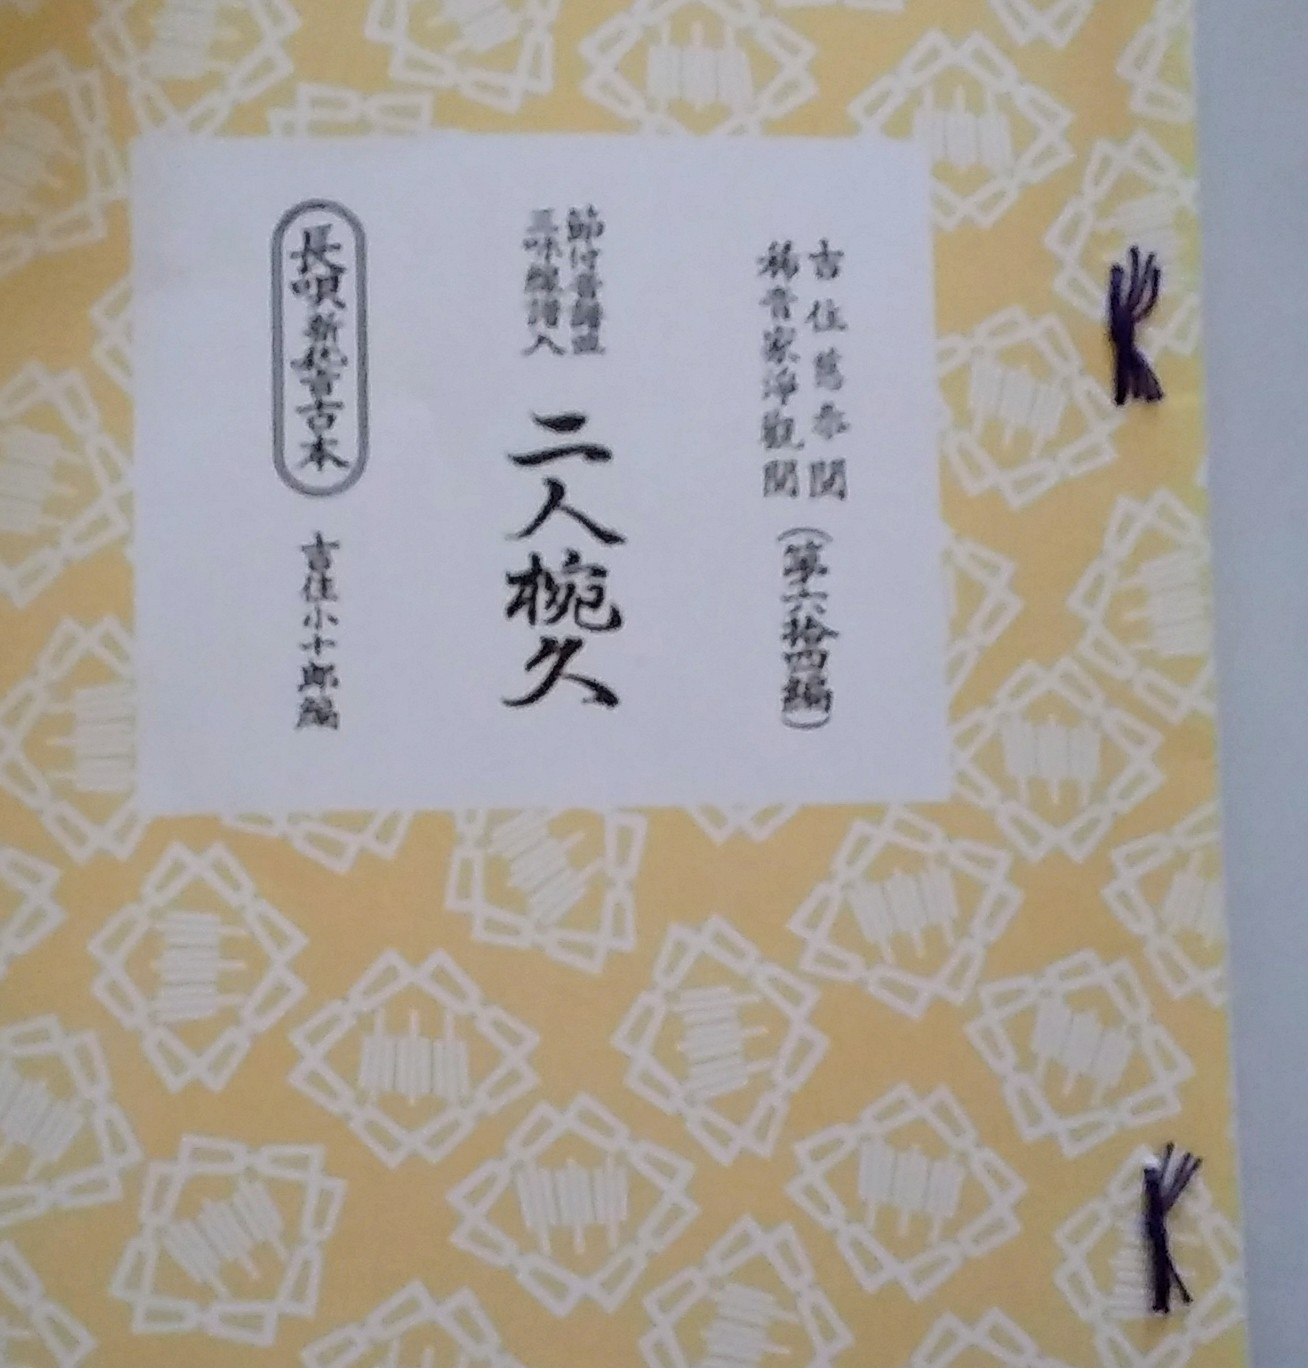 吉住慈恭閲
稀音家淨觀閲
（第六拾四編）
節付音譜並
三味線譜入
二人椀久
長唄新稽古本
吉住小十郎編